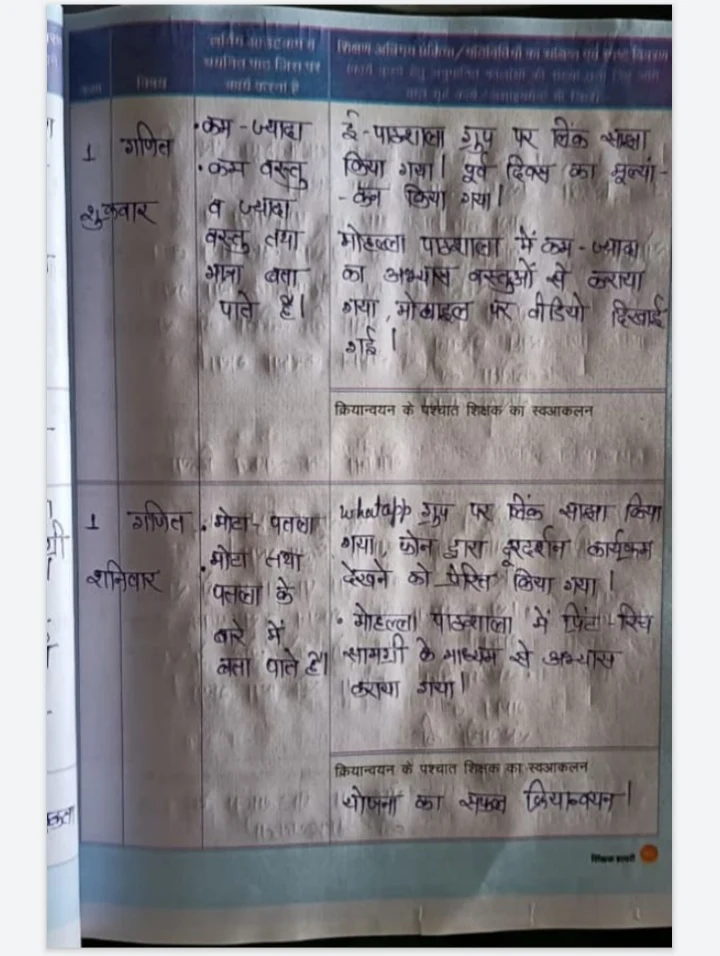 विषय
1 गणित
शुक्रवार
• कम - ज्यादा
• कम वस्तु
व ज्यादा
वस्तु तथा
मात्रा बता
पाते है।
ई - पाठशाला ग्रुप पर लिंक साझा
किया गया। पूर्व दिवस का मूल्यां-
- कन किया गया।
मोहल्ला पाठशाला में कम - ज्यादा
का अभ्यास वस्तुओं से कराया
गया, मोबाइल पर वीडियो दिखाई
गई।
क्रियान्वयन के पश्चात शिक्षक का स्वआकलन
1 गणित
शनिवार
• मोटा - पतला
• मोटा तथा
पतला के
बारे में
बता पाते है।
whatapp ग्रुप पर लिंक साझा किया
गया, फोन द्वारा दूरदर्शन कार्यक्रम
देखने को प्रेरित किया गया।
• मोहल्ला पाठशाला में प्रिंट - रिच
सामग्री के माध्यम से अभ्यास
कराया गया।
क्रियान्वयन के पश्चात शिक्षक का स्वआकलन
योजना का सफल क्रियान्वयन।
शिक्षक डायरी